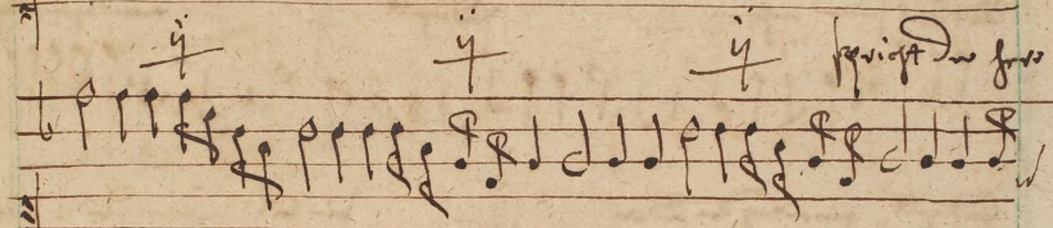 ÿ ÿ ÿ spricht der herr